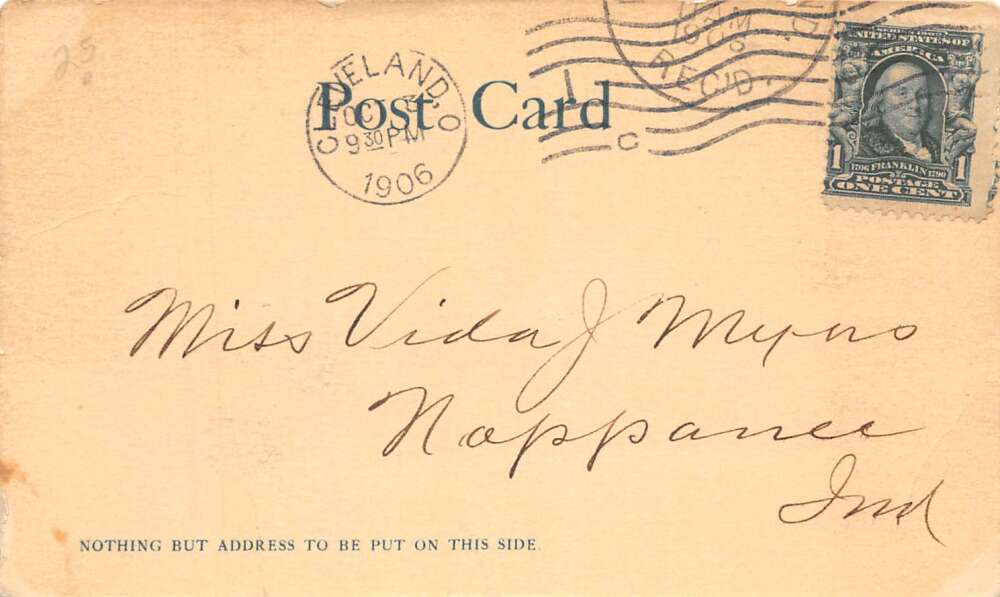 25
Post Card
CLEVELAND, O
OCT 3
9 30 PM
1906
REC'D
C
SERIES 1902
UNITED STATES OF
AMERICA
1 1706 FRANKLIN 1790 1
POSTAGE
ONE CENT
Miss Vida J Myers
Nappanee
Ind
NOTHING BUT ADDRESS TO BE PUT ON THIS SIDE.